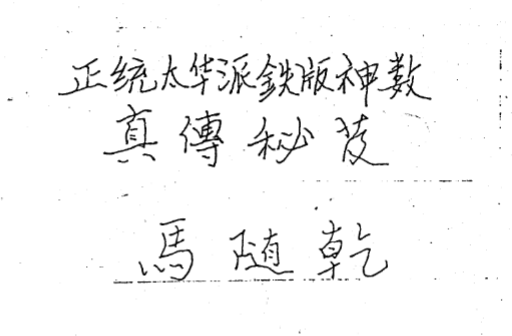 正统太华派鉄版神数
真傳秘芨
馬随乾